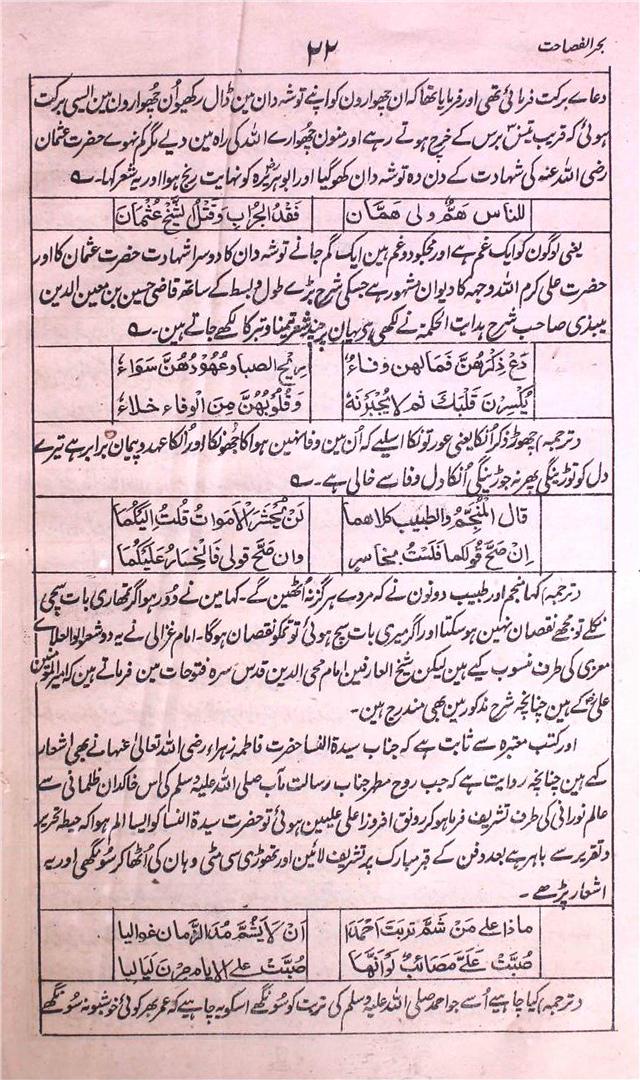 بحر الفصاحت
۲۲
دعاے برکت فرمائی تھی اور فرمایا تھا کہ ان چھوارون کو اپنے توشہ دان مین ڈال رکھیو اُن چھوارون مین ایسی برکت
ہوئی کہ قریب تیس برس کے خرچ ہوتے رہے اور منون چھوارے اللہ کی راہ مین دیے مگر کم نہوے حضرت عثمان
رضی اللہ عنہ کی شہادت کے دن وہ توشہ دان کھو گیا اور ابوہریرہ کو نہایت رنج ہوا اور یہ شعر کہا۔ ؎
للناس هَمٌّ ولى هَمَّان فَقْدُ الجِرَابِ وَقَتْلُ الشَّيْخِ عُثْمَان
یعنی لوگون کو ایک غم ہے اور مجکو دو غم ہین ایک گم جانے توشہ دان کا دوسرا شہادت حضرت عثمان کا اور
حضرت علی کرم اللہ وجہہ کا دیوان مشہور ہے جسکی شرح بڑے طول و بسط کے ساتھ قاضی حسین بن معین الدین
میبذی صاحب شرح ہدایت الحکمہ نے لکھی ہی یہان پر چند شعر تیمنا و تبرکا لکھے جاتے ہین۔ ؎
دَعْ ذِكْرَهُنَّ فَمَا لهن وفاءُ رِيْحُ الصبا وعُهُوْدُهُنَّ سَوَاءُ
يَكْسِرْنَ قَلْبَكَ ثم لا يَجْبُرْنَهُ وَقُلُوْبُهُنَّ مِنَ الْوفاء خلاءُ
(ترجمہ) چھوڑ ذکر اُنکا یعنی عورتونکا اسلیے کہ اُن مین وفا نہین ہوا کا جھونکا اور اُنکا عہد و پیمان برابر ہے تیرے
دل کو توڑینگی پھر نہ جوڑینگی اُنکا دل وفا سے خالی ہے۔ ؎
قال الْمُنَجِّمُ والطبيب كلاهما لَنْ يُحْشَرَ الْاَمْوَاتُ قُلْتُ اِلَيْكُمَا
اِنْ صَحَّ قَوْلُكُمَا فَلَسْتُ بخاسرٍ وان صَحَّ قولى فَالْخَسَارُ عَلَيْكُمَا
(ترجمہ) کہا منجم اور طبیب دونون نے کہ مردے ہرگز نہ اُٹھین گے۔ کہا مین نے دُور ہو اگر تمھاری بات سچی
نکلے تو مجھے نقصان نہین ہو سکتا اور اگر میری بات سچ ہوئی تو تمکو نقصان ہوگا۔ امام غزالی نے یہ دو شعر ابوالعلاے
معری کی طرف منسوب کیے ہین لیکن شیخ العارفین امام محی الدین قدس سرہ فتوحات مین فرماتے ہین کہ امیر المومنین
علی کے ہین چنانچہ شرح مذکور مین بھی مندرج ہین۔
اور کتب معتبرہ سے ثابت ہے کہ جناب سیدۃ النسا حضرت فاطمہ زہراء رضی اللہ تعالیٰ عنہا نے بھی اشعار
کہے ہین چنانچہ روایت ہے کہ جب روح مطہر جناب رسالت مآب صلی اللہ علیہ وسلم کی اس خاکدان ظلمانی سے
عالم نورانی کی طرف تشریف فرما ہو کر رونق افروز اعلیٰ علیین ہوئی تو حضرت سیدۃ النسا کو ایسا الم ہوا کہ حیطہ تحریر
و تقریر سے باہر ہے بعد دفن کے قبر مبارک پر تشریف لائین اور تھوڑی سی مٹی وہان کی اُٹھا کر سونگھی اور یہ
اشعار پڑھے۔
ماذا على مَنْ شَمَّ تربتَ احْمَدٍ اَنْ لَا يَشُمَّ مُدَ الزَّمان غواليا
صُبَّتْ عَلَىَّ مَصَائبٌ لَوْاَنَّهَا صُبَّتْ على الايام صِرْنَ لَيَاليا
(ترجمہ) کیا چاہیے اُسے جو احمد صلی اللہ علیہ وسلم کی تربت کو سونگھے اسکو یہ چاہیے کہ عمر بھر کوئی خوشبو نہ سونگھے